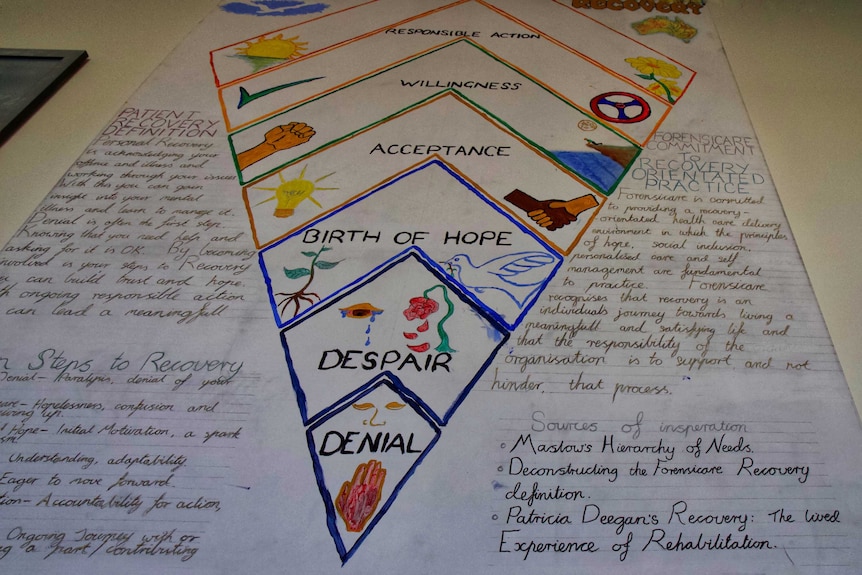 RECOVERY
RESPONSIBLE ACTION
WILLINGNESS
ACCEPTANCE
BIRTH OF HOPE
DESPAIR
DENIAL
PATIENT
RECOVERY
DEFINITION
Personal Recovery
is acknowledging your
offence and illness and
working through your issues
With this you can gain
insight into your mental
illness and learn to manage it.
Denial is often the first step.
Knowing that you need help and
asking for it is OK. By becoming
involved in your steps to Recovery
you can build trust and hope.
ongoing responsible action
can lead a meaningfull
Steps to Recovery
Denial- Paralysis, denial of your
Hopelessness, confusion and
giving up.
Hope- Initial Motivation, a spark
Understanding, adaptability.
Eager to move forward.
Accountability for action,
Ongoing Journey with or
a part/contributing
FORENSICARE
COMMITMENT
TO
RECOVERY
ORIENTATED
PRACTICE
Forensicare is committed
to providing a recovery-
orientated health care delivery
environment in which the principles
of hope, social inclusion,
personalised care and self
management are fundamental
to practice. Forensicare
recognises that recovery is an
individuals journey towards living a
meaningfull and satisfying life and
that the responsibility of the
organisation is to support, and not
hinder, that process.
Sources of insperation
Maslow's Hierarchy of Needs.
Deconstructing the Forensicare Recovery
definition.
Patricia Deegan's Recovery: The lived
Experience of Rehabilitation.